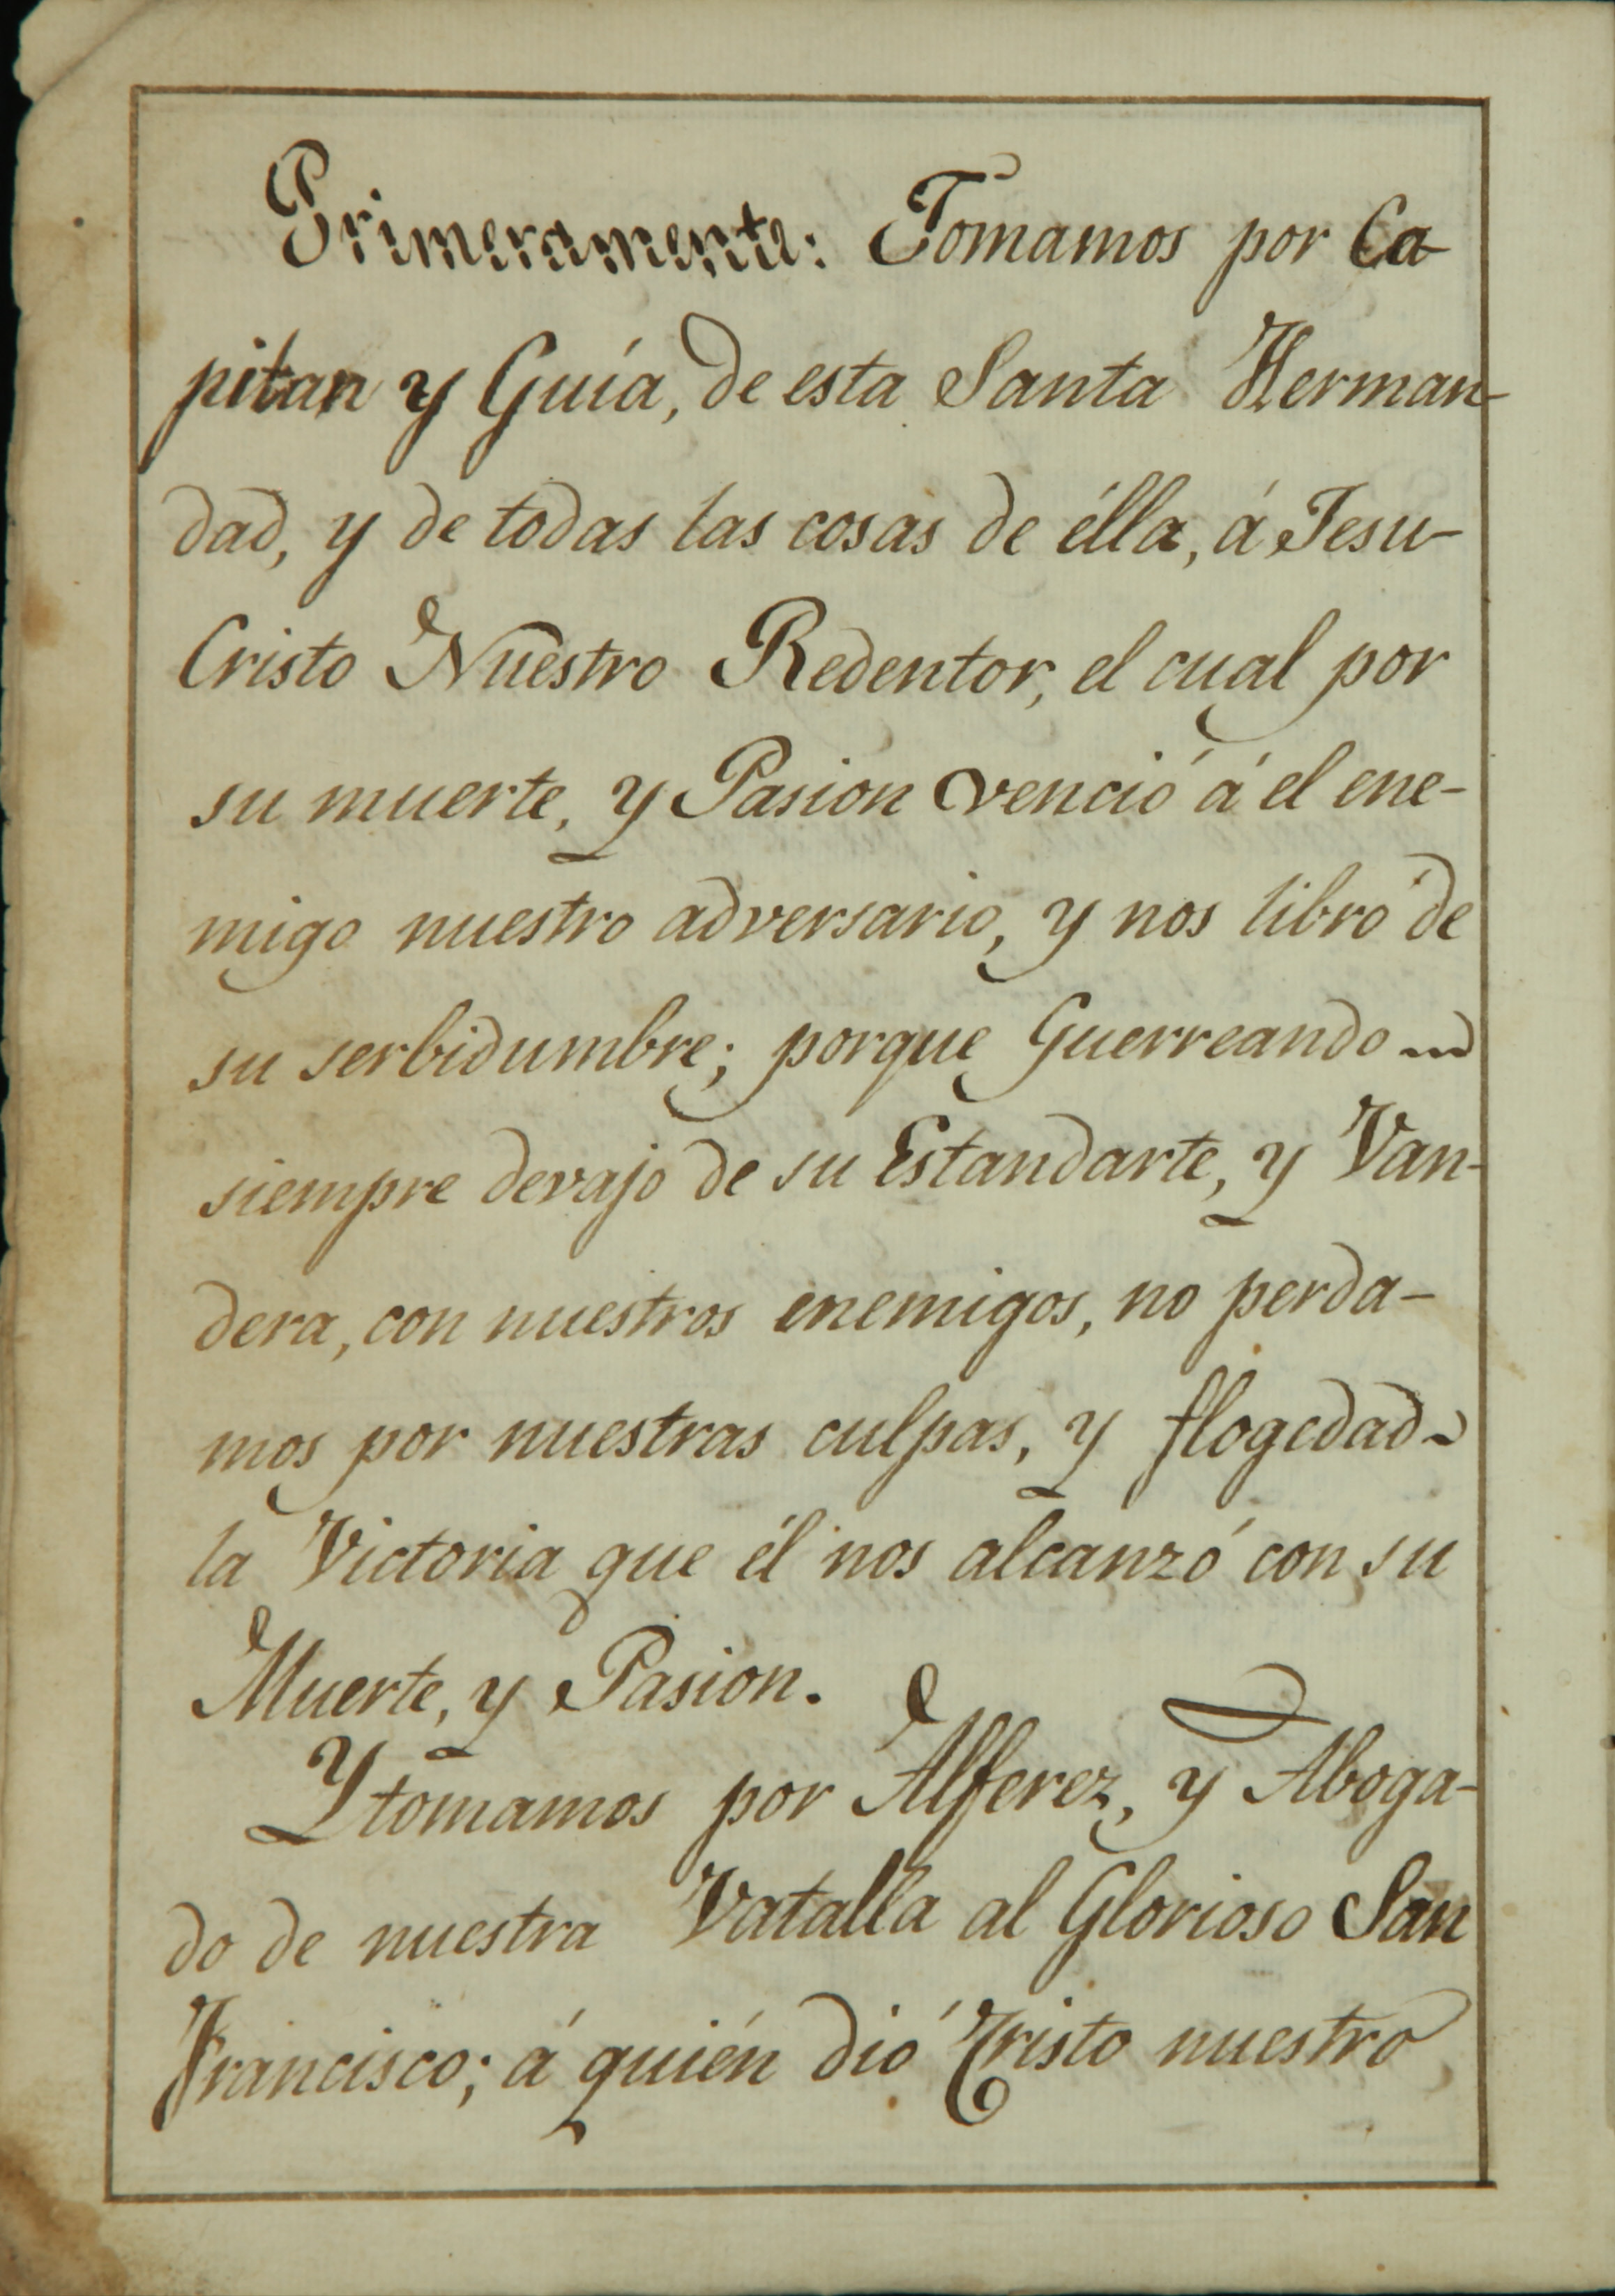 Primeramente: Tomamos por Ca-
pitan y Guía, de esta Santa Herman-
dad, y de todas las cosas de élla, á Jesu-
Cristo Nuestro Redentor, el cual por
su muerte, y Pasion venció á el ene-
migo nuestro adversario, y nos libró de
su serbidumbre; porque Guerreando
siempre devajo de su Estandarte, y Van-
dera, con nuestros enemigos, no perda-
mos por nuestras culpas, y flogedad
la Victoria que él nos alcanzó con su
Muerte, y Pasion.
Y tomamos por Alferez, y Aboga-
do de nuestra Vatalla al Glorioso San
Francisco; á quién dió Cristo nuestro